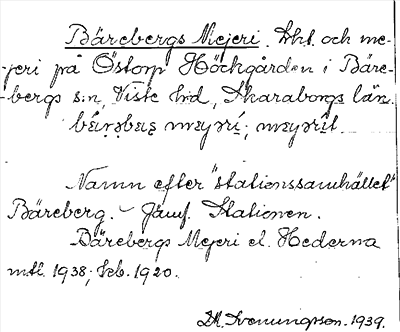 Bärebergs Mejeri. Lht. och me-
jeri på Östorp Höckgården i Bäre-
bergs sn, Viste hd, Skaraborgs län.
Namn efter "stationssamhället"
Bäreberg. - Jämf. Stationen.
Bärebergs Mejeri el. Hederna
mtl. 1938; Leb. 1920.
1939.